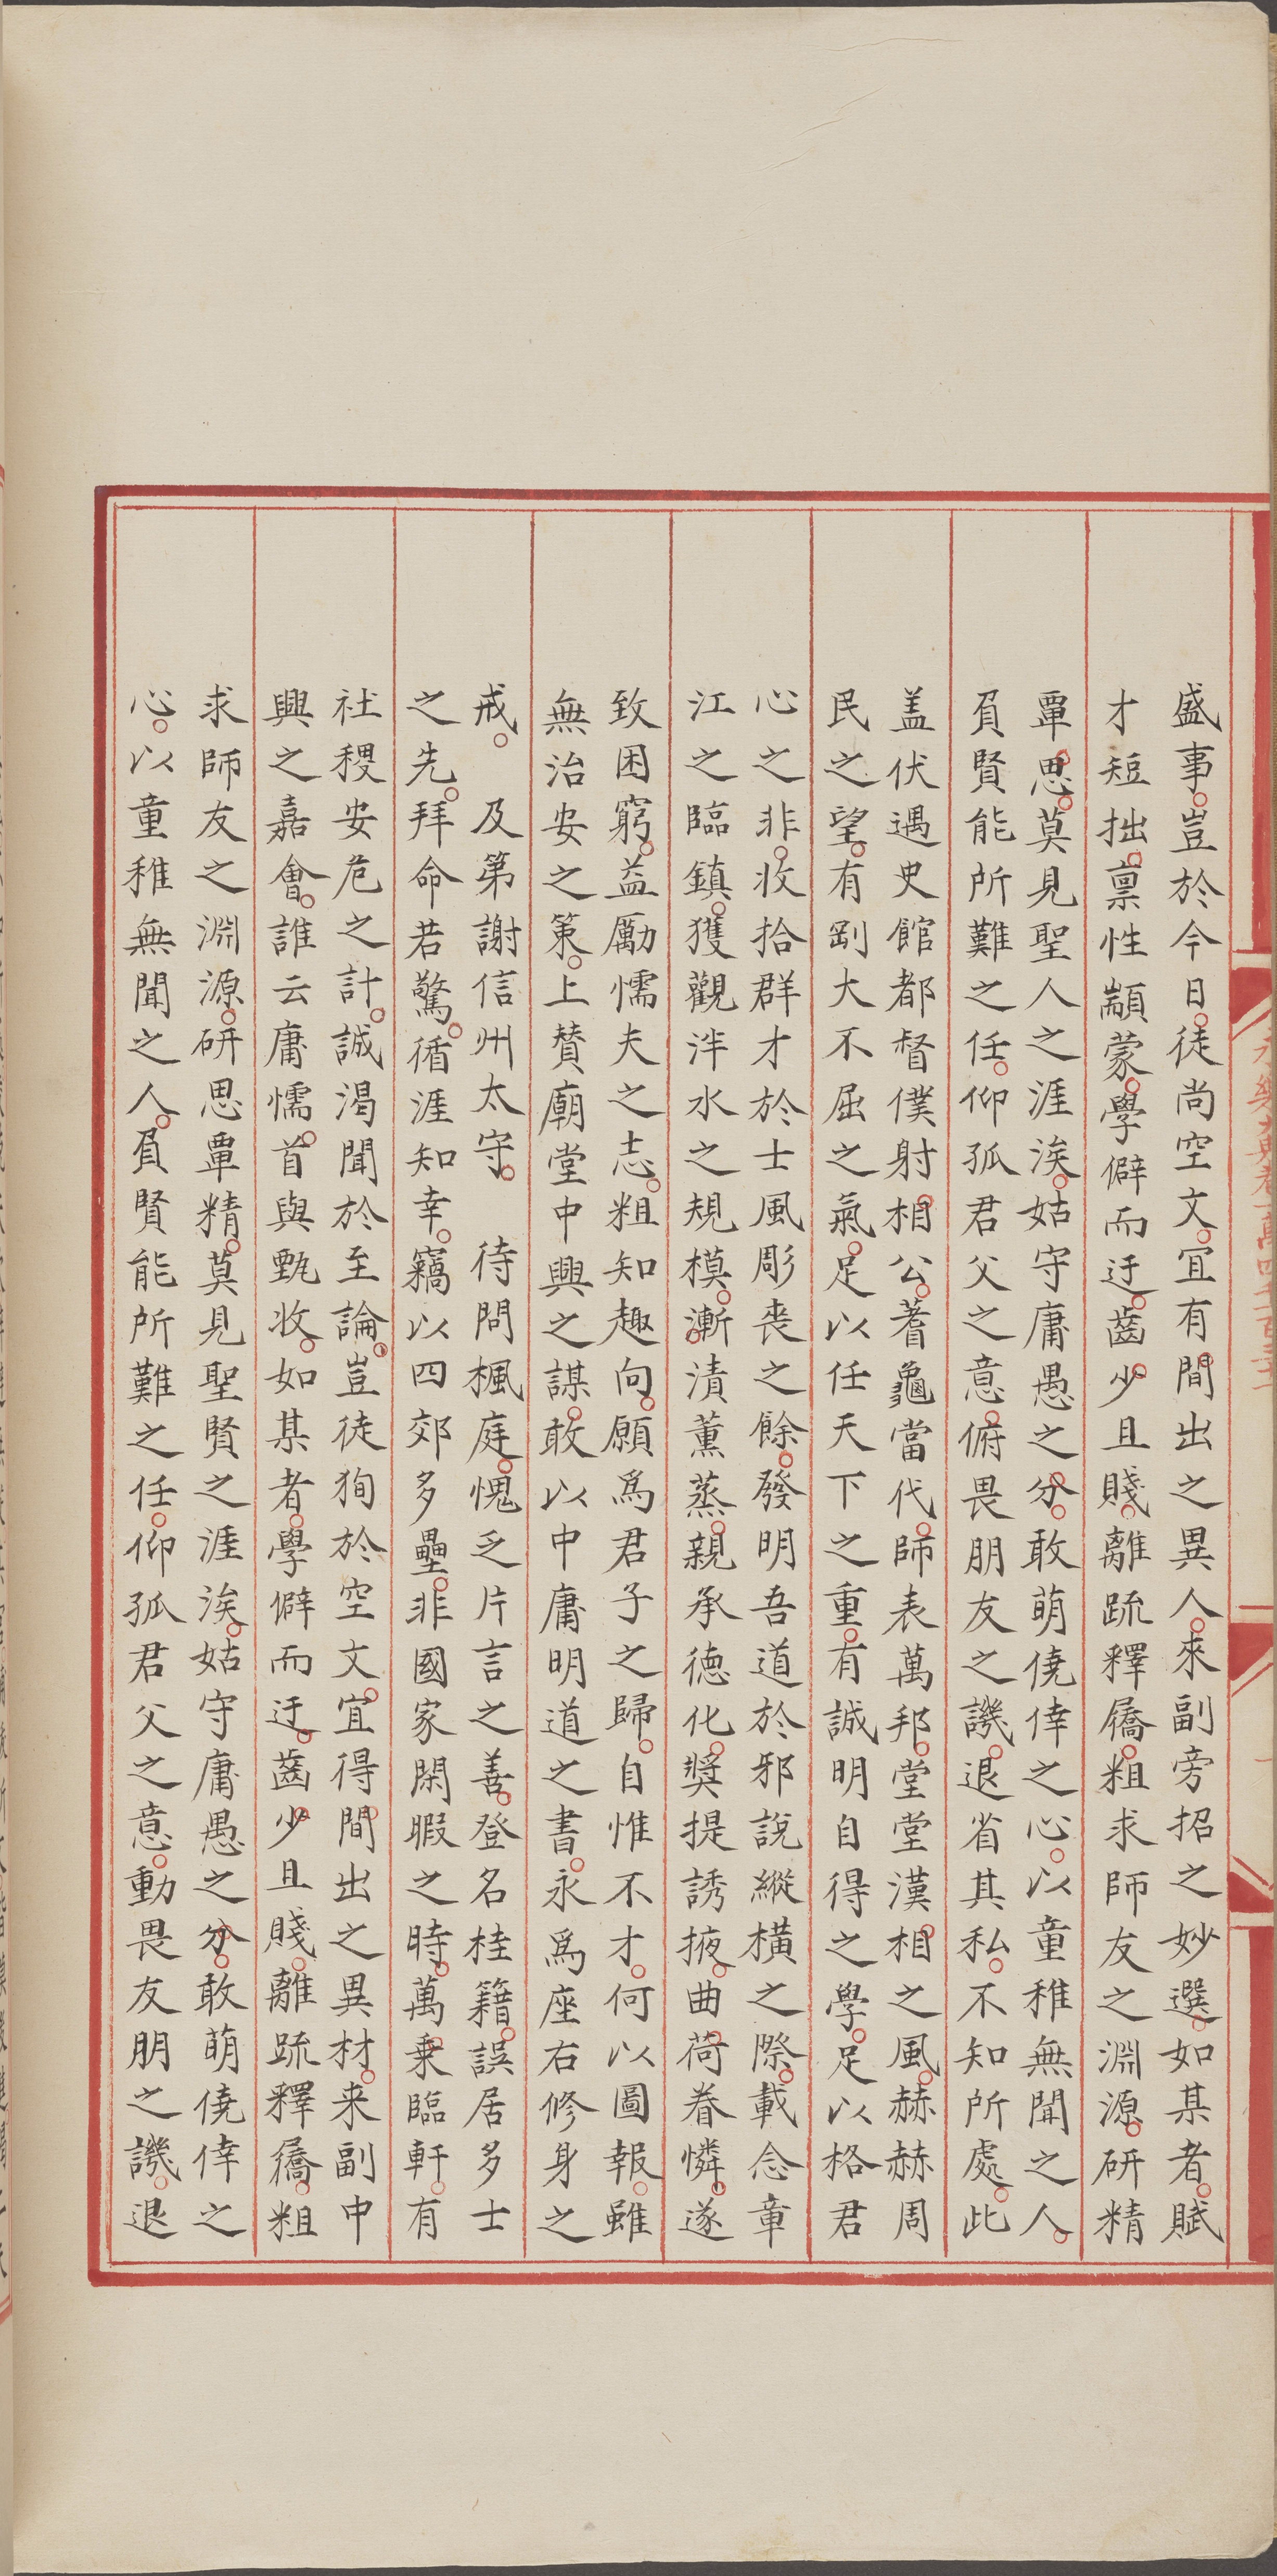 盛事豈於今日徒尚空文宜有間出之異人來副旁招之妙選如某者賦
才短拙禀性顓蒙學僻而迂齒少且賤離䟽釋屩粗求師友之淵源研精
覃思莫見聖人之涯涘姑守庸愚之分敢萌僥倖之心以童稚無聞之人
負賢能所難之任仰孤君父之意俯畏朋友之譏退省其私不知所處此
盖伏遇史館都督僕射相公蓍龜當代師表萬邦堂堂漢相之風赫赫周
民之望有剛大不屈之氣足以任天下之重有誠明自得之學足以格君
心之非收拾群才於士風彫喪之餘發明吾道於邪說縱橫之際載念章
江之臨鎮獲觀泮水之規模漸漬薰蒸親承德化奬提誘掖曲荷眷憐遂
致困窮益勵懦夫之志粗知趣向願爲君子之歸自惟不才何以圖報雖
無治安之策上賛廟堂中興之謀敢以中庸明道之書永爲座右修身之
戒 及第謝信州太守 待問楓庭愧乏片言之善登名桂籍誤居多士
之先拜命若驚循涯知幸竊以四郊多壘非國家閑暇之時萬乗臨軒有
社稷安危之計誠渴聞於至論豈徒狥於空文宜得間出之異材来副中
興之嘉會誰云庸懦首與甄收如某者學僻而迂齒少且賤離䟽釋屩粗
求師友之淵源研思覃精莫見聖賢之涯涘姑守庸愚之分敢萌僥倖之
心以童稚無聞之人負賢能所難之任仰孤君父之意動畏友朋之譏退